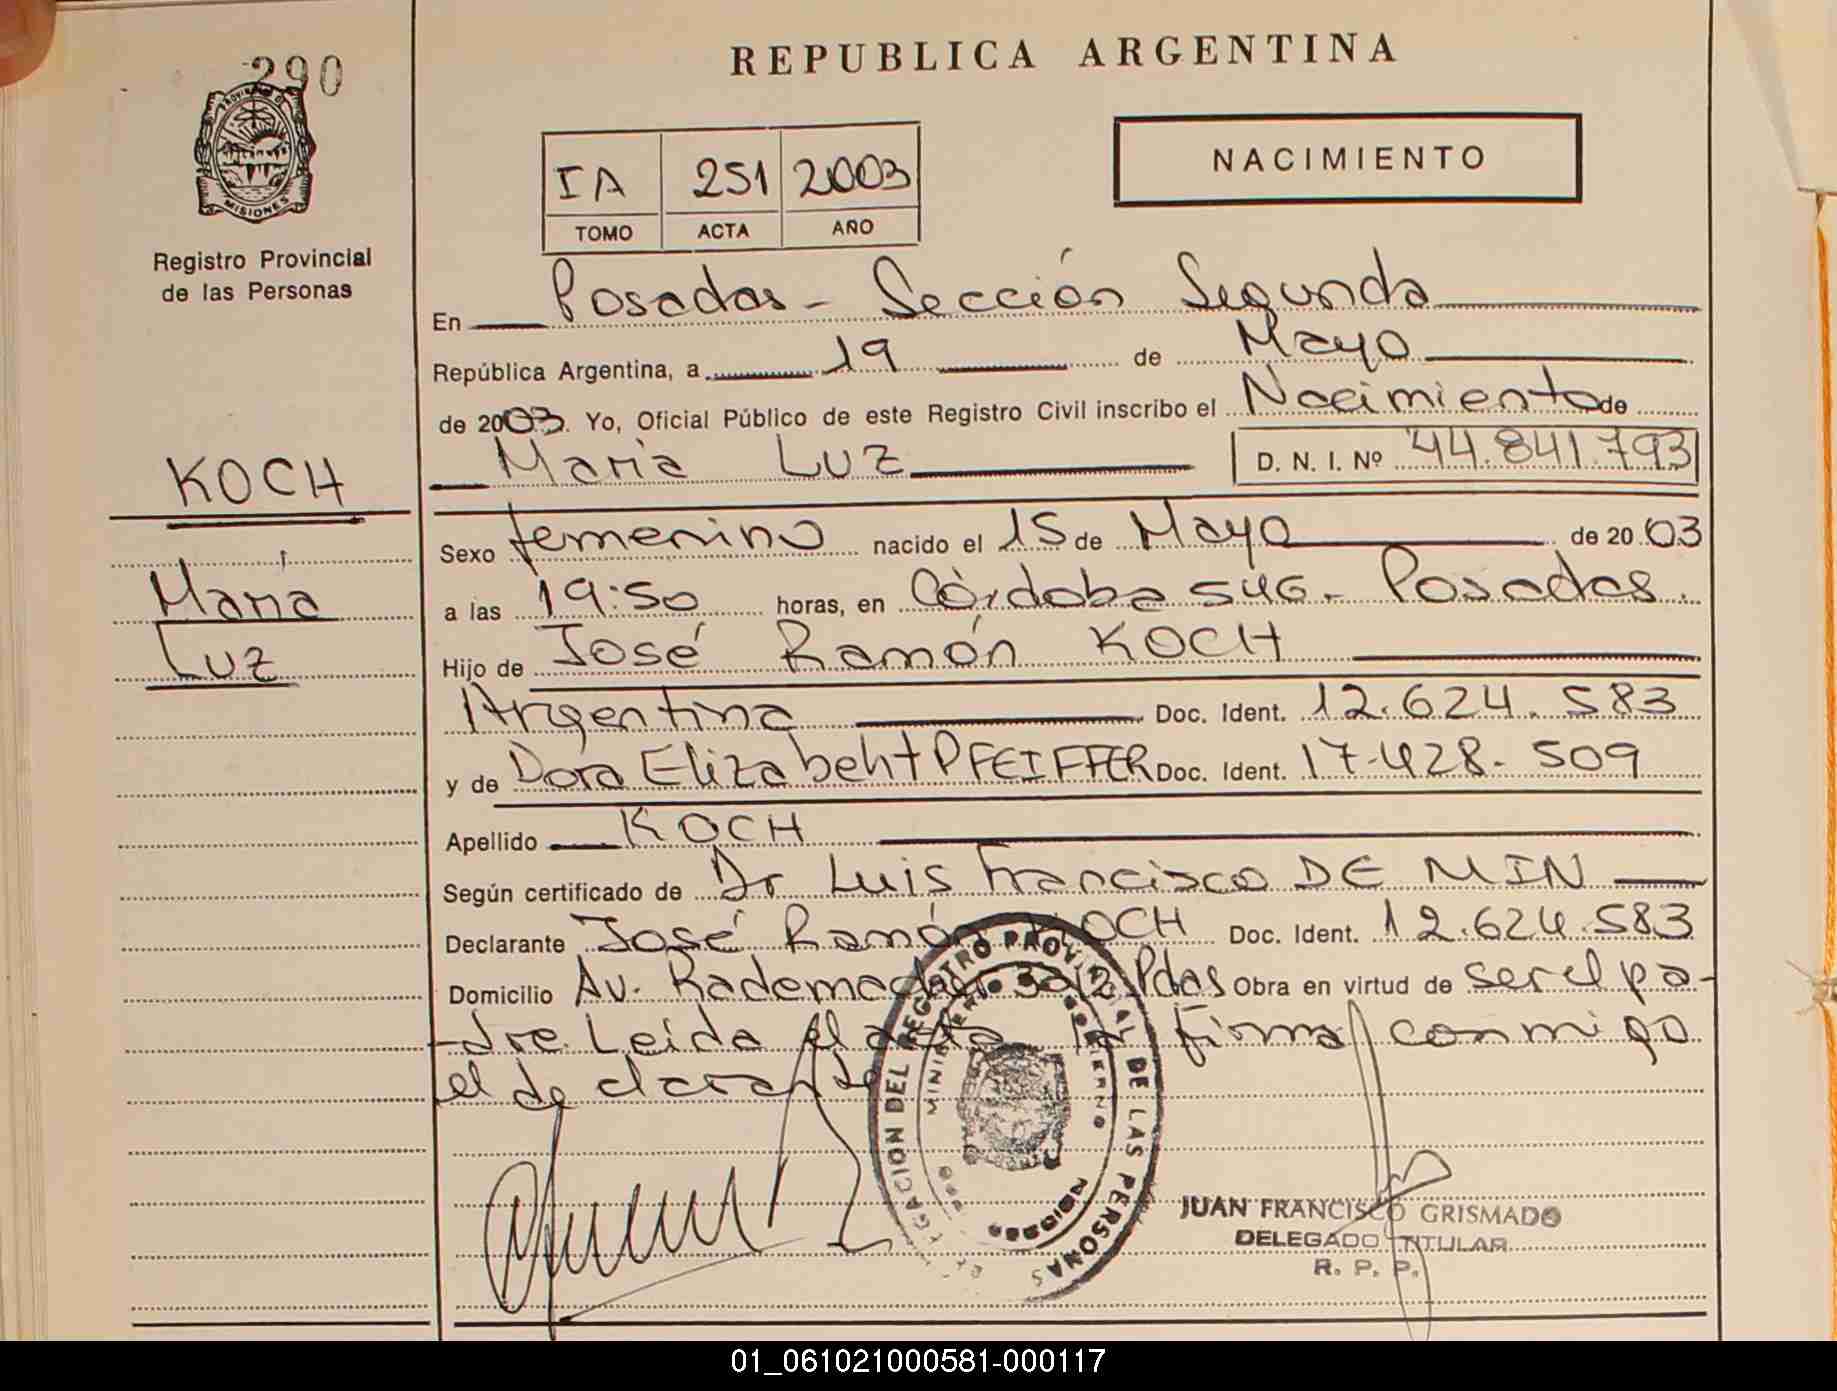 290
PROVINCIA DE
MISIONES
Registro Provincial
de las Personas
REPUBLICA ARGENTINA
IA 251 2003
TOMO ACTA AÑO
NACIMIENTO
En Posadas - Sección Segunda
República Argentina, a 19 de Mayo
de 2003. Yo, Oficial Público de este Registro Civil inscribo el Nacimiento de
María Luz D. N. I. Nº 44.841.793
KOCH
María
Luz
Sexo femenino nacido el 15 de Mayo de 2003
a las 19:50 horas, en Córdoba 546 - Posadas.
Hijo de José Ramón KOCH
Argentina Doc. Ident. 12.624.583
y de Dora Elizabeht PFEIFFER Doc. Ident. 17.428.509
Apellido KOCH
Según certificado de Dr Luis Francisco DE MIN
Declarante José Ramón KOCH Doc. Ident. 12.624.583
Domicilio Av. Rademacher Pdas Obra en virtud de ser el pa-
dre. Leída el acta la firma conmigo
el declarante
REGISTRO PROVINCIAL DE LAS PERSONAS
JUAN FRANCISCO GRISMADO
DELEGADO TITULAR
R. P. P.
01_061021000581-000117